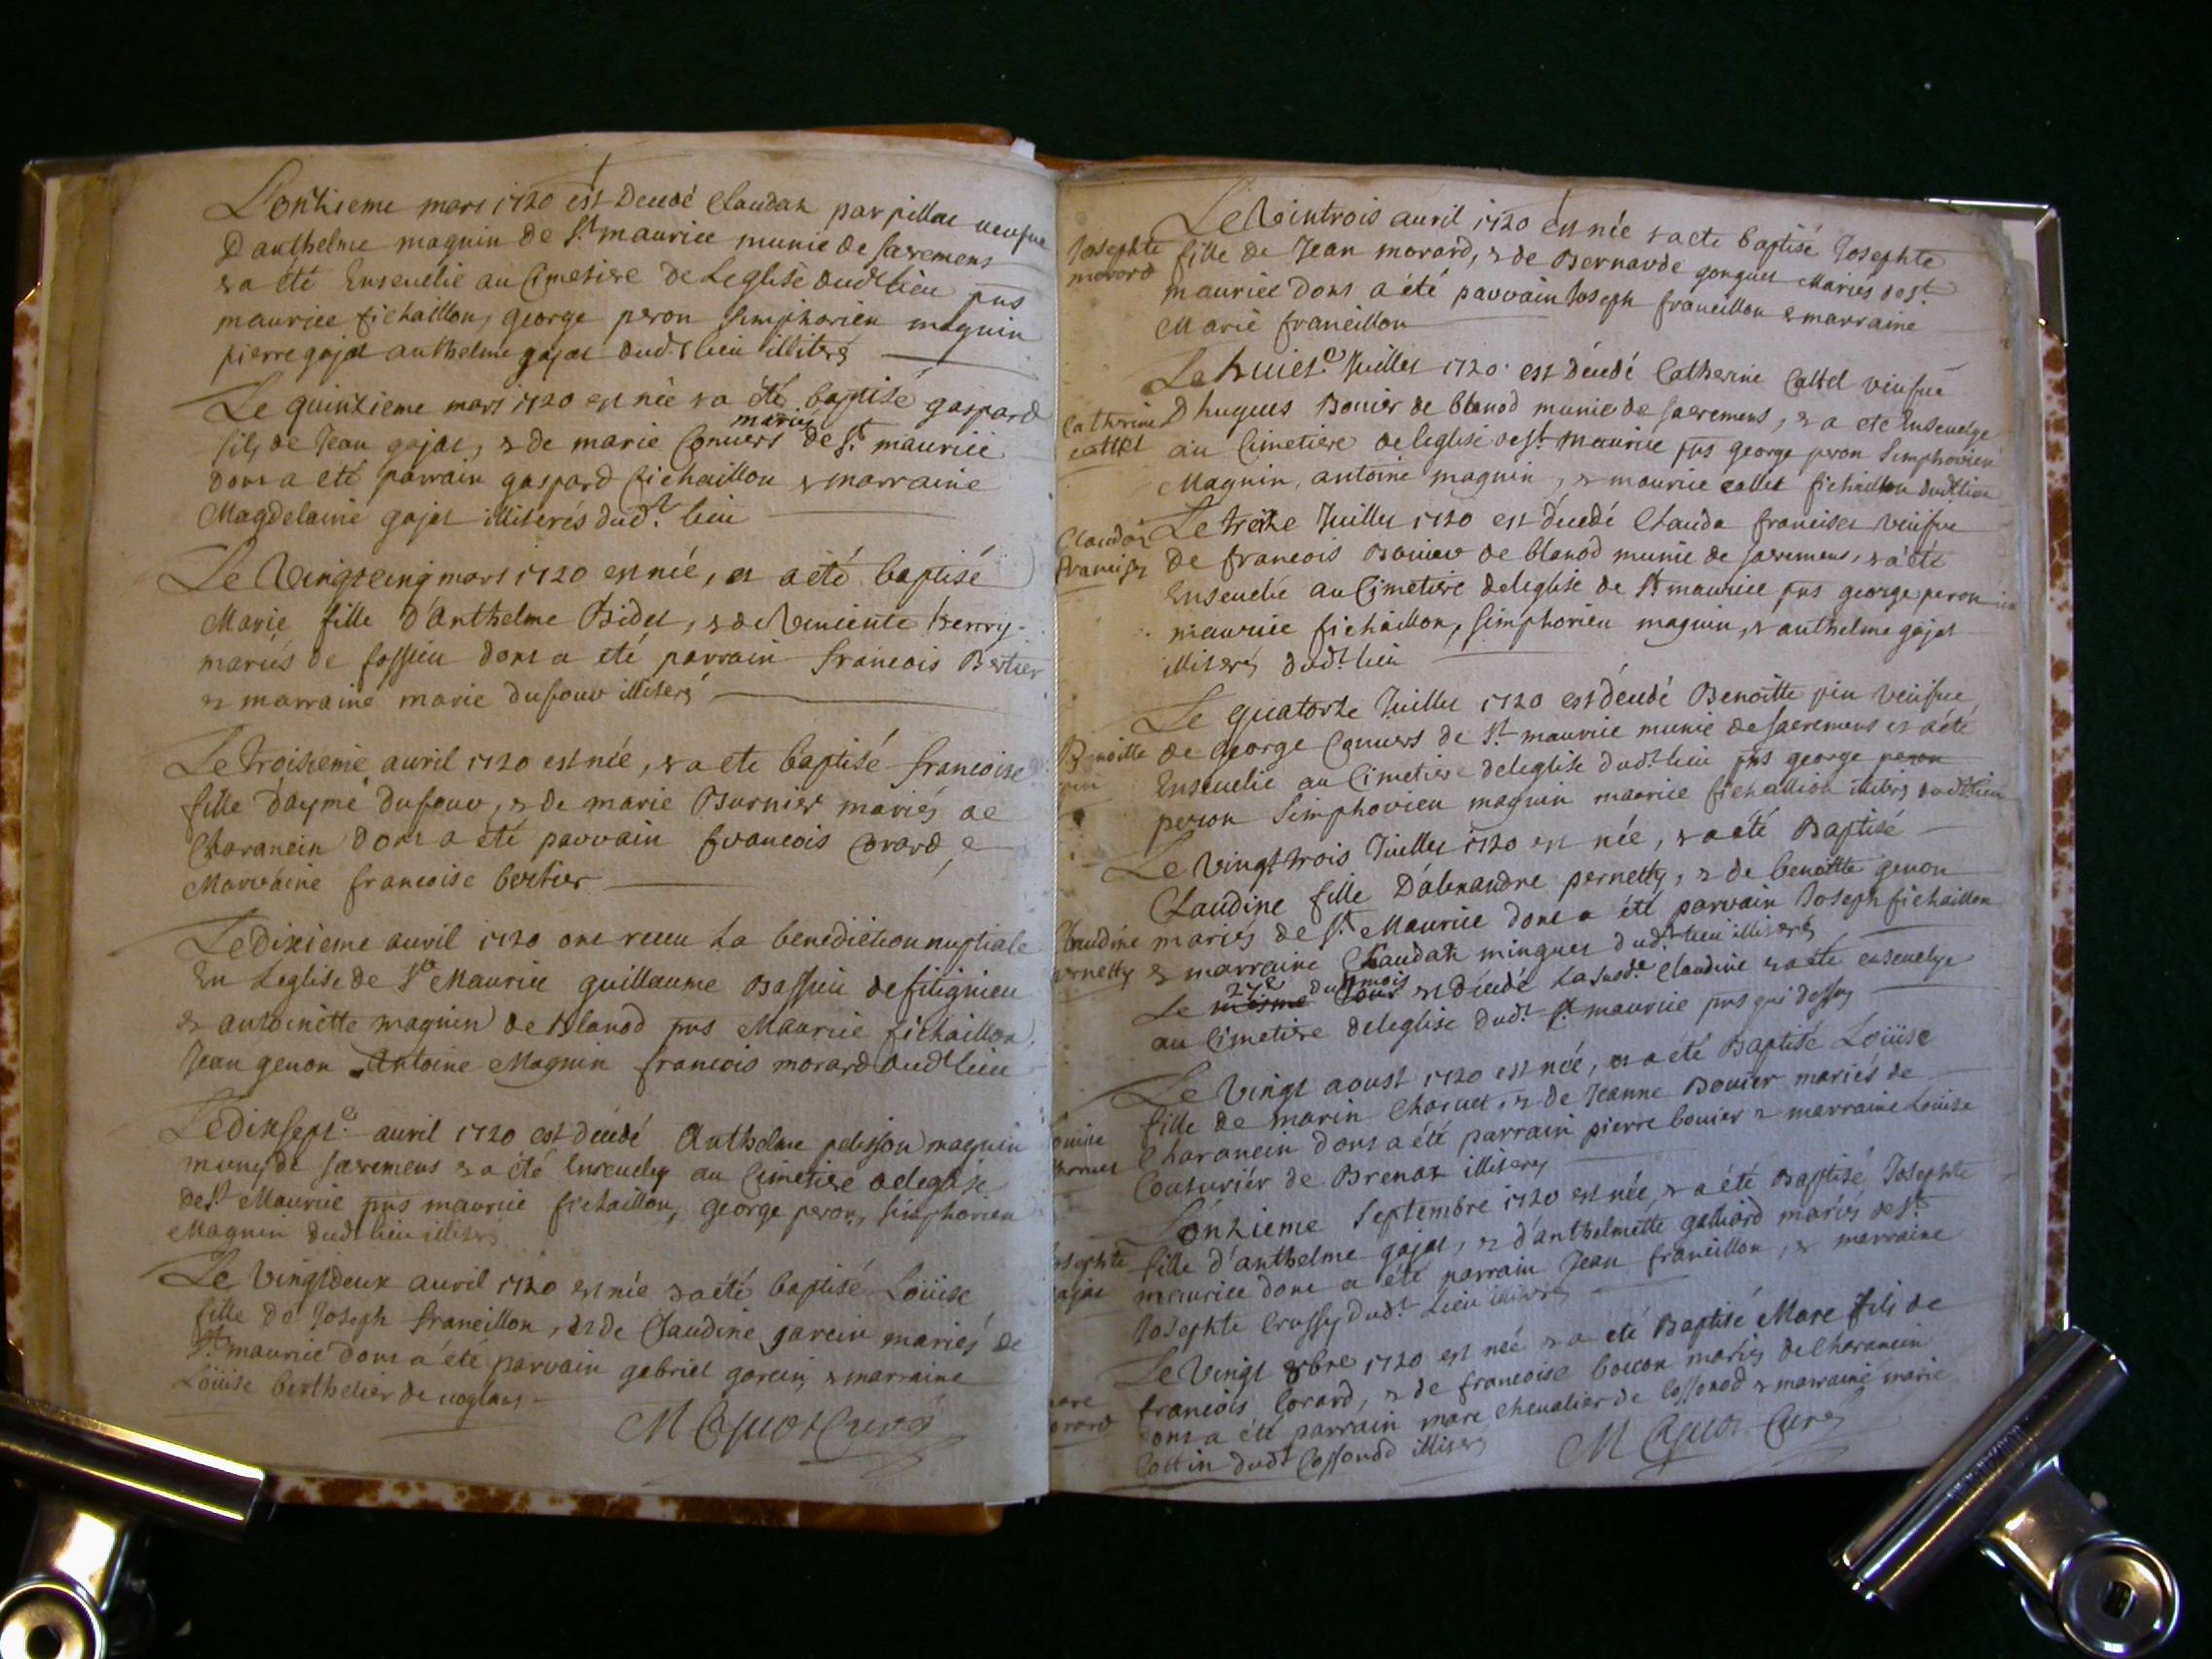 L'onzieme mars 1720 est Decedé Claudaz parpillae veufve
D'anthelme maguin de St maurice munie de sacremens
& a été Ensevelie au Cimetiere de Leglise dudt lieu pns
maurice fichaillon, george peron simphorien maguin
pierre gojat anthelme gojat dudt lieu illiterés
Le quinzieme mars 1720 est née & a été baptisé gaspard
mariés
fils de Jean gojat, & de marie Convers de St maurice
dont a eté parrain gaspard fichaillon & marraine
Magdelaine gojat illiterés dudt lieu
Le Vingtcinq mars 1720 est née, et a été baptisé
Marie fille d'Anthelme Bidet, & de Vincente berry
mariés de fossieu dont a eté parrain francois Bertier
& marraine marie dufour illiteré
Le troisieme avril 1720 est née, & a ete baptisé francoise
fille d'aymé dufour, & de marie Burnier mariés de
Charancin dont a été parrain francois Corard, &
Marraine francoise bertier
Le Dixieme avril 1720 ont receu La benediction nuptiale
En Leglise de St Maurice guillaume Bassieu de fitignieu
& antoinette maguin de Blanod pns Maurice fichaillon,
Jean genon Antoine Maguin francois morard dudt lieu
Le dixsept.e avril 1720 est decedé Anthelme pelisson maguin
muny de sacremens & a été Ensevely au Cimetiere de leglise
de St Maurice pns maurice fichaillon, george peron, simphorien
Maguin dudt lieu illiterés
Le Vingtdeux avril 1720 est née & a été baptisé Loüise
fille de Joseph francillon, & de Claudine garcin mariés de
St maurice dont a été parrain gabriel garcin & marraine
Loüise berthelier de
M Curé
Le Vintrois avril 1720 est née & a ete baptisé Josephte
Josephte
morard
fille de Jean morard, & de Bernarde gonguet Mariés de St
maurice dont a été parrain Joseph francillon & marraine
Marie francillon
Le huict.e Juillet 1720 est décedé Catherine Cattel veufve
Catherine
cattel
D'hugues Bonier de blanod munie de sacremens, & a ete Ensevelye
au Cimetiere de leglise de St maurice pns george peron simphorien
Maguin, antoine maguin, & maurice fichaillon dudt lieu
Claudaz
francises
Le treize Juillet 1720 est décedé Clauda francises veufve
De francois Bonier de blanod munie de sacremens, & a été
Ensevelie au Cimetiere de leglise de St maurice pns george peron
maurice fichaillon, simphorien maguin, & anthelme gojat
illiterés dudt lieu
Le quatorze Juillet 1720 est décedé Benoitte pin veufve
Benoitte
pin
de george Convers de St maurice munie de sacremens et a été
Ensevelie au Cimetiere de leglise dudt lieu pns george peron
peron simphorien maguin maurice fichaillon illiterés dudt lieu
Le Vingttrois Juillet 1720 est née, & a été Baptisé
Claudine fille D'alexandre pernetty, & de benoitte genon
Claudine
pernetty
mariés de St Maurice dont a été parrain Joseph fichaillon
& marraine Claudaz minguet dudt lieu illiterés
27e du mois
Le mesme Jour est décedé La susd.e Claudine & a été ensevelye
au Cimetiere de leglise dudt St maurice pns qui dessus
Le Vingt aoust 1720 est née, et a été Baptisé Loüise
Louise
Charvet
fille de marin Charvet, & de Jeanne Bonier mariés de
Charancin dont a été parrain pierre bonier & marraine Louise
Couturier de Brenaz illiterés
L'onzieme Septembre 1720 est née, & a été Baptisé Josephte
Josephte
gojat
fille d'anthelme gojat, & d'anthelmette galliard mariés de St
maurice dont a été parrain Jean francillon, & marraine
Josephte Crussy dudt Lieu illiterés
Le Vingt 8bre 1720 est né & a été Baptisé Marc fils de
Marc
Corard
francois Corard, & de francoise boccon mariés de Charancin
dont a été parrain marc chevalier de Cossonod & marraine marie
Cottin dudt Cossonod illiterés
M Curé